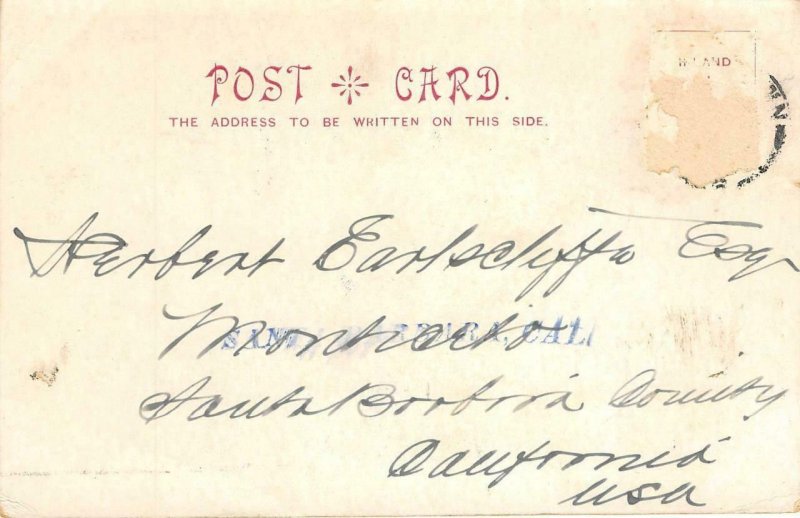 POST CARD.
THE ADDRESS TO BE WRITTEN ON THIS SIDE.
AND
Herbert Earlscliffe Esq
Montecito
SANTA BARBARA, CAL
Santa Barbara County
California
USA